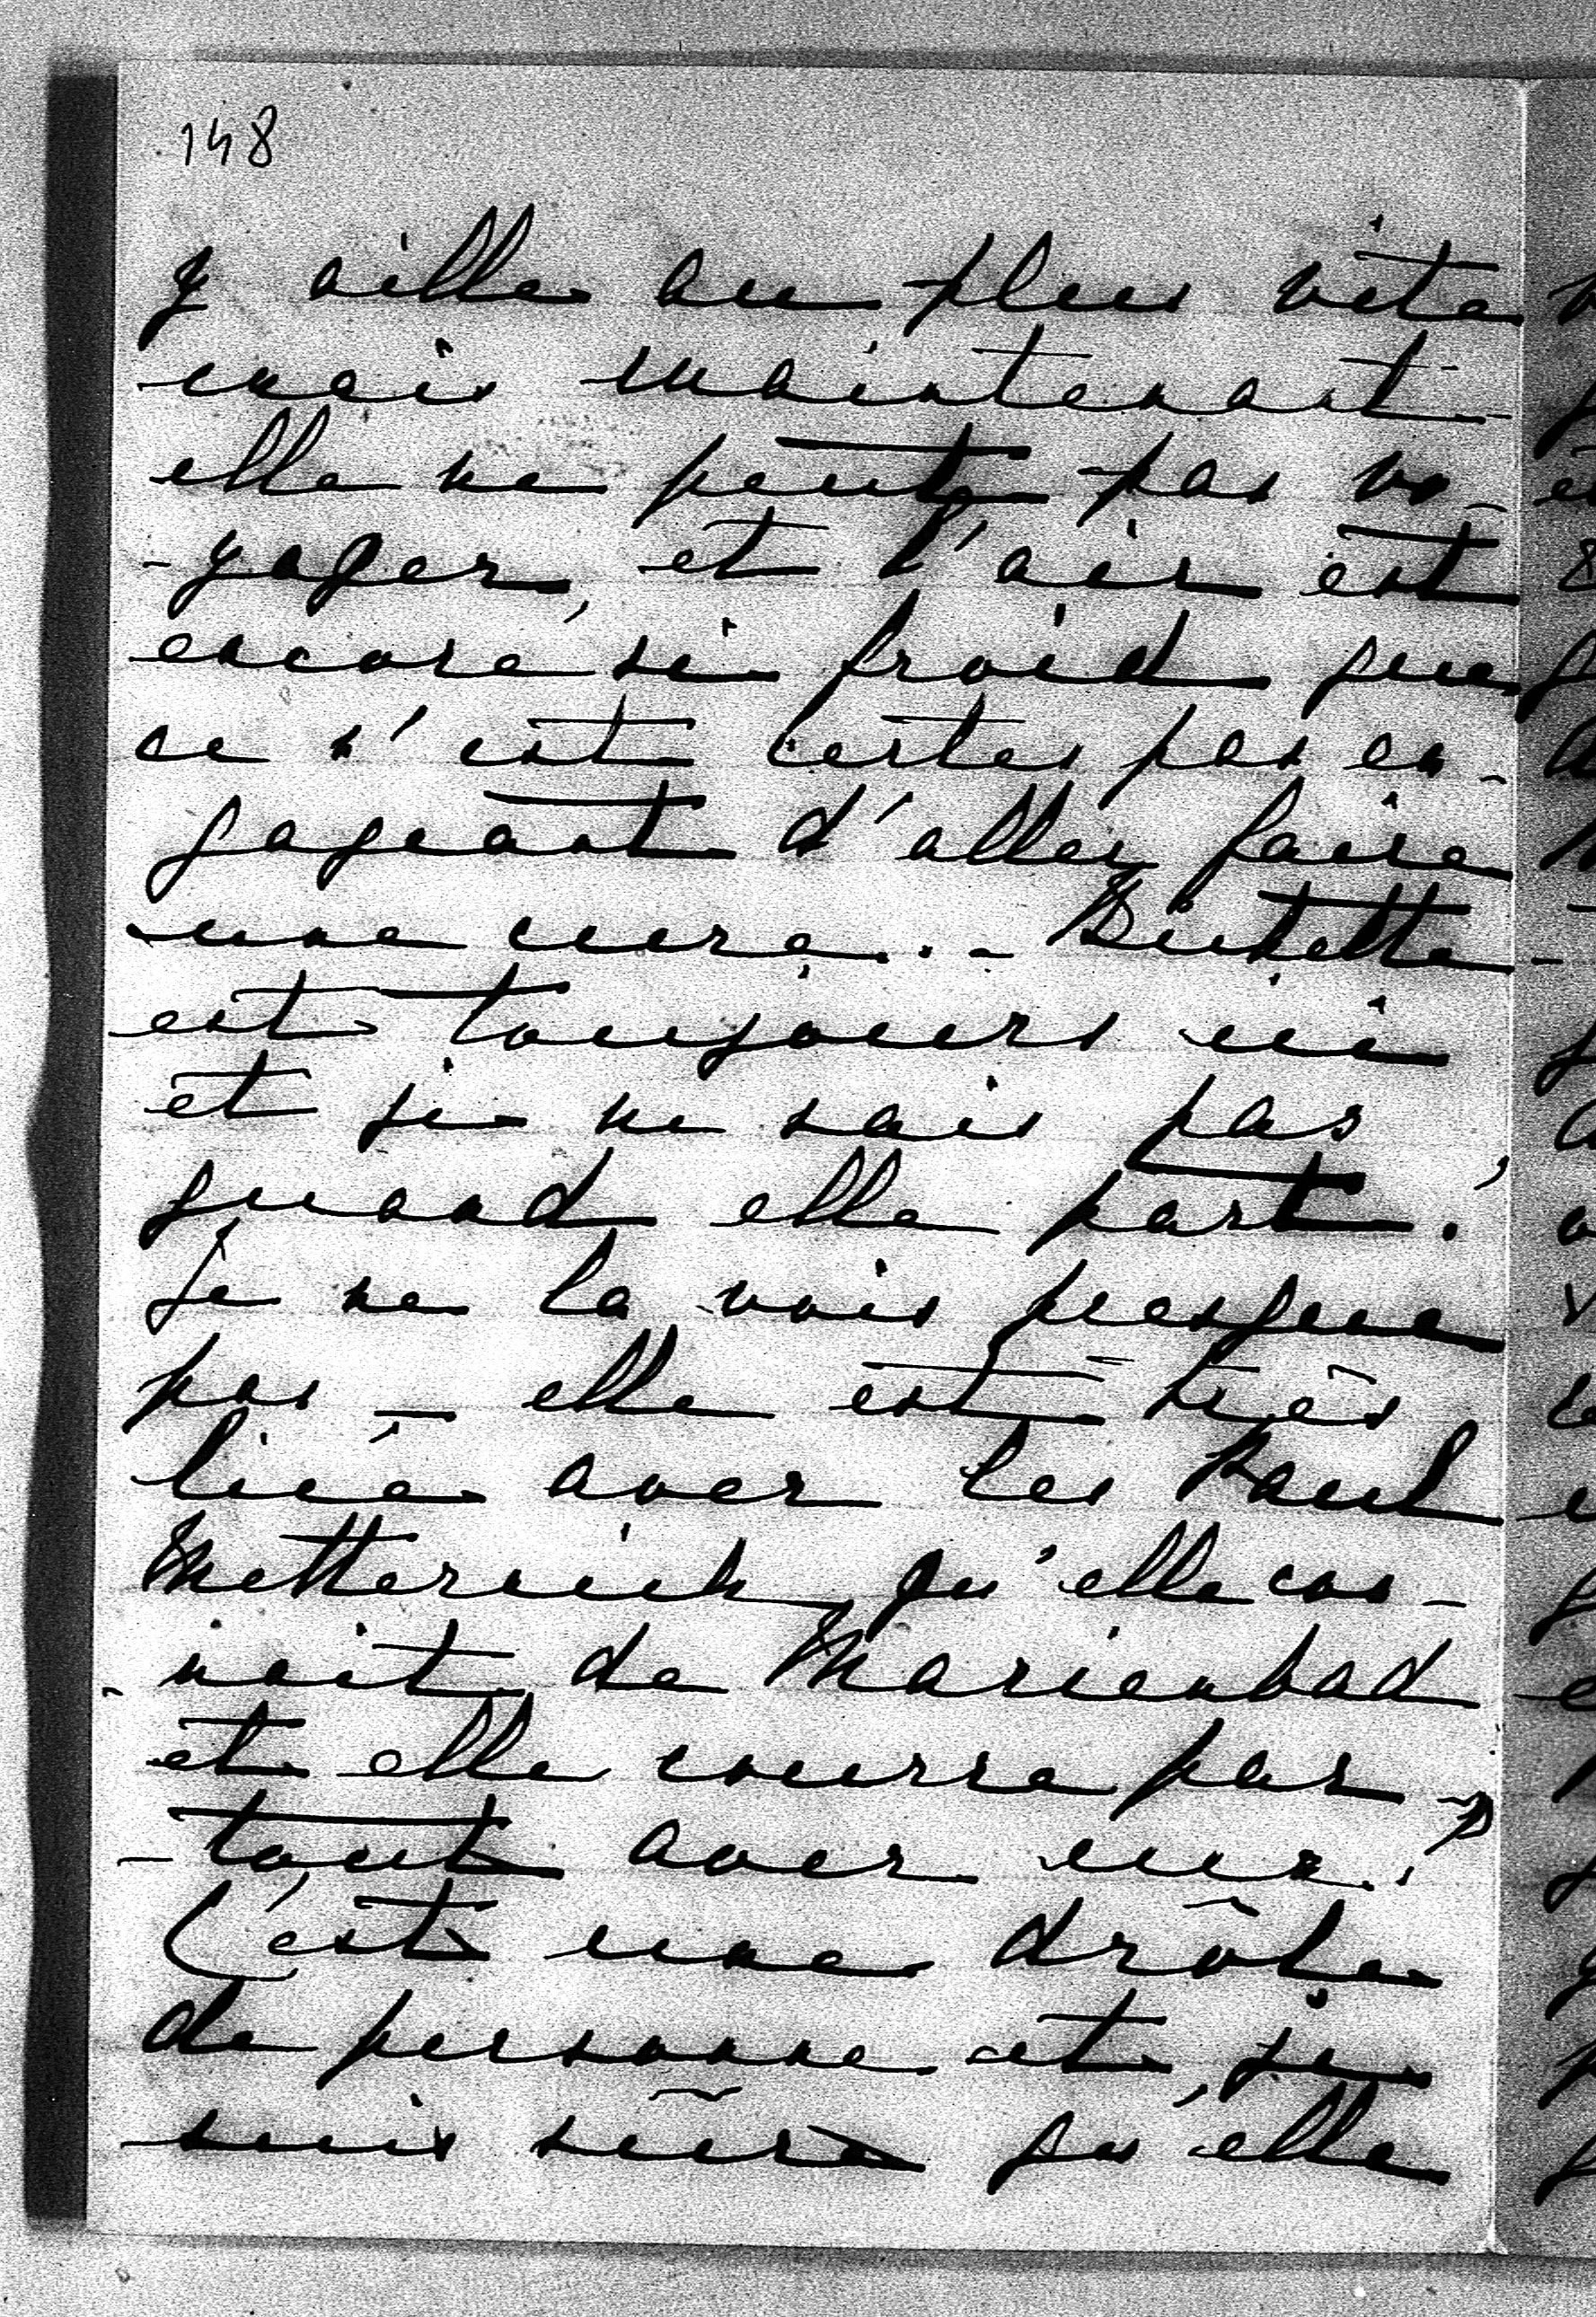 148
y aille au plus vite
mais maintenant
elle ne peut pas vo-
-yager, et l'air est
encore si froid que
ce n'est certes pas en-
gageant d'aller faire
une cure. -
est toujours ici
et je ne sais pas
quand elle part.
Je ne la vois presque
pas - elle est très
liée avec les Paul
Metternich qu'elle con-
-nait de Marienbad
et elle courre par-
-tout avec eux.
C'est une drôle
de personne et je
suis sûre qu'elle